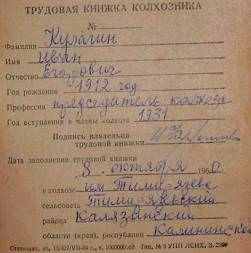 ТРУДОВАЯ КНИЖКА КОЛХОЗНИКА
№
Фамилия Кулагин
Имя Иван
Отчество Егорович
Год рождения 1912 год
Профессия председатель колхоза
Год вступления в члены колхоза 1931
Подпись владельца
трудовой книжки
Дата заполнения трудовой книжки
8 октября 196
в колхозе им Тимирязева
сельсовета Тимирязевский
района Калязинский
области (края), республики Калининской